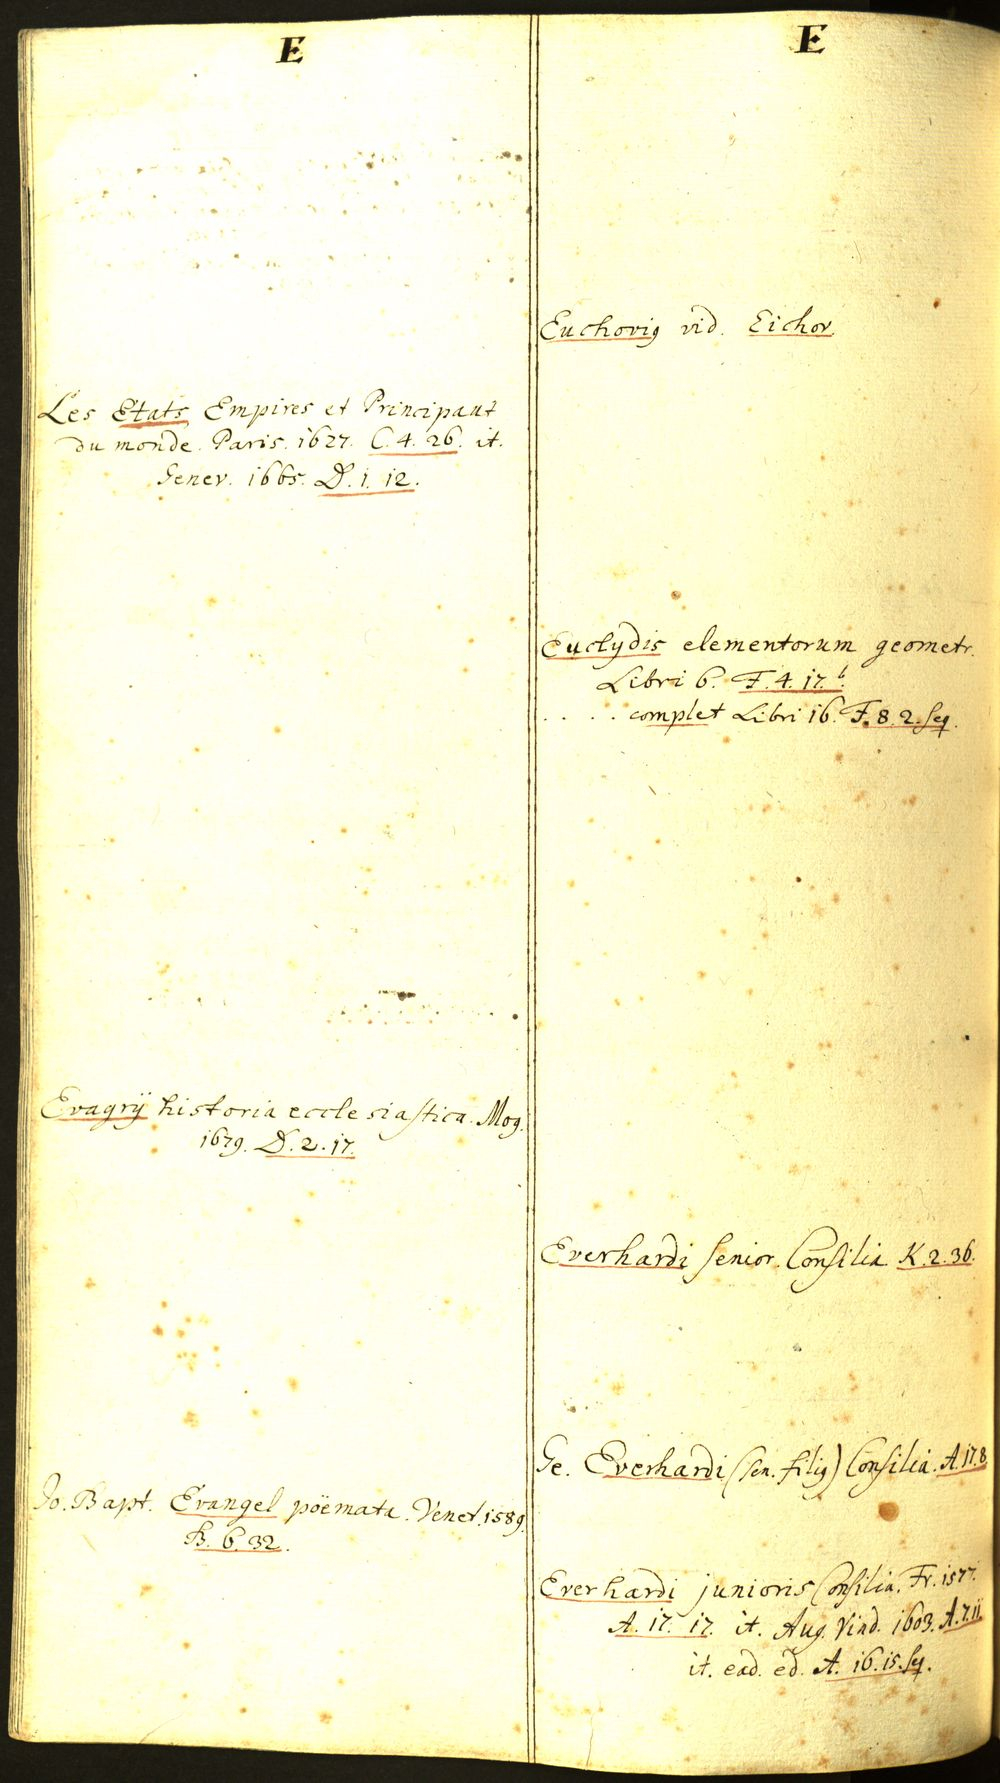 E
Les Etats Empires et Principaut
du monde. Paris. 1627. C. 4. 26. it.
Genev. 1665. D. 1. 12.
Evagrij historia ecclesiastica. Mog.
1679. D. 2. 17.
Jo. Bapt. Evangel poëmata. Venet. 1589.
B. 6. 32.
E
Euchorig vid. Eichor.
Euclydis elementorum geometr.
Libri 6. F. 4. 17. b.
. . . . . complet Libri 16. F. 8. 2. seq.
Everhardi senior. Consilia K. 2. 36.
Ge. Everhardi (sen. filig) Consilia. A. 17. 8.
Everhardi junioris Consilia. Fr. 1577.
A. 17. 17. it. Aug. Vind. 1603. A. 7. 11
it. ead. ed. A. 16. 15. seq.